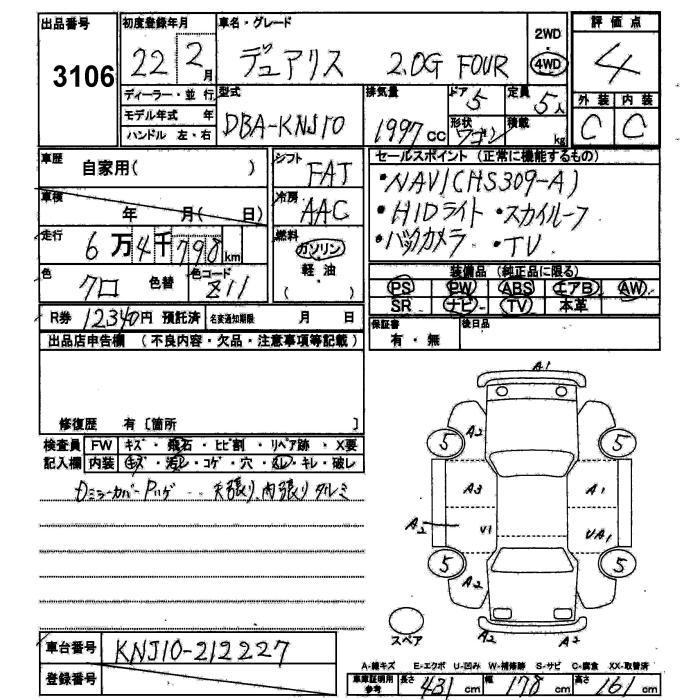 出品番号 初度登録年月 車名・グレード 2WD 評価点
3106 22 2月 デュアリス 2.0G FOUR 4WD 4
ディーラー・並行 型式 排気量 ドア 5 定員 5人 外装 内装
モデル年式 年 DBA-KNJ10 1997cc 形状 ワゴン 積載 kg C C
ハンドル 左・右
車歴 自家用( ) シフト FAT セールスポイント (正常に機能するもの)
車検 年 月( 日) 冷房 AAC ・NAVI(HS309-A)
・HIDライト ・スカイルーフ
走行 6万4千798km 燃料 ガソリン ・バックカメラ ・TV
軽油
( )
色 クロ 色替 色コード Z11 装備品 (純正品に限る)
PS PW ABS エアB AW
SR ナビ TV 本革
R券 12340円 預託済 名変通知期限 月 日 保証書 有・無 後日品
出品店申告欄 (不良内容・欠品・注意事項等記載)
修復歴 有〔箇所 〕
検査員 FW キズ・飛石・ヒビ割・リペア跡・X要
記入欄 内装 キズ・汚レ・コゲ・穴・スレ・キレ・破レ
天張り,内張りタルミ
A1
5 A2 5
A3 A1
A2 V1 UA1
5 A2 5
A2 A2
スペア
車台番号 KNJ10-212227
登録番号
A-線キズ E-エクボ U-凹み W-補修跡 S-サビ C-腐食 XX-取替済
車庫証明用参考 長さ 431cm 幅 178cm 高さ 161cm